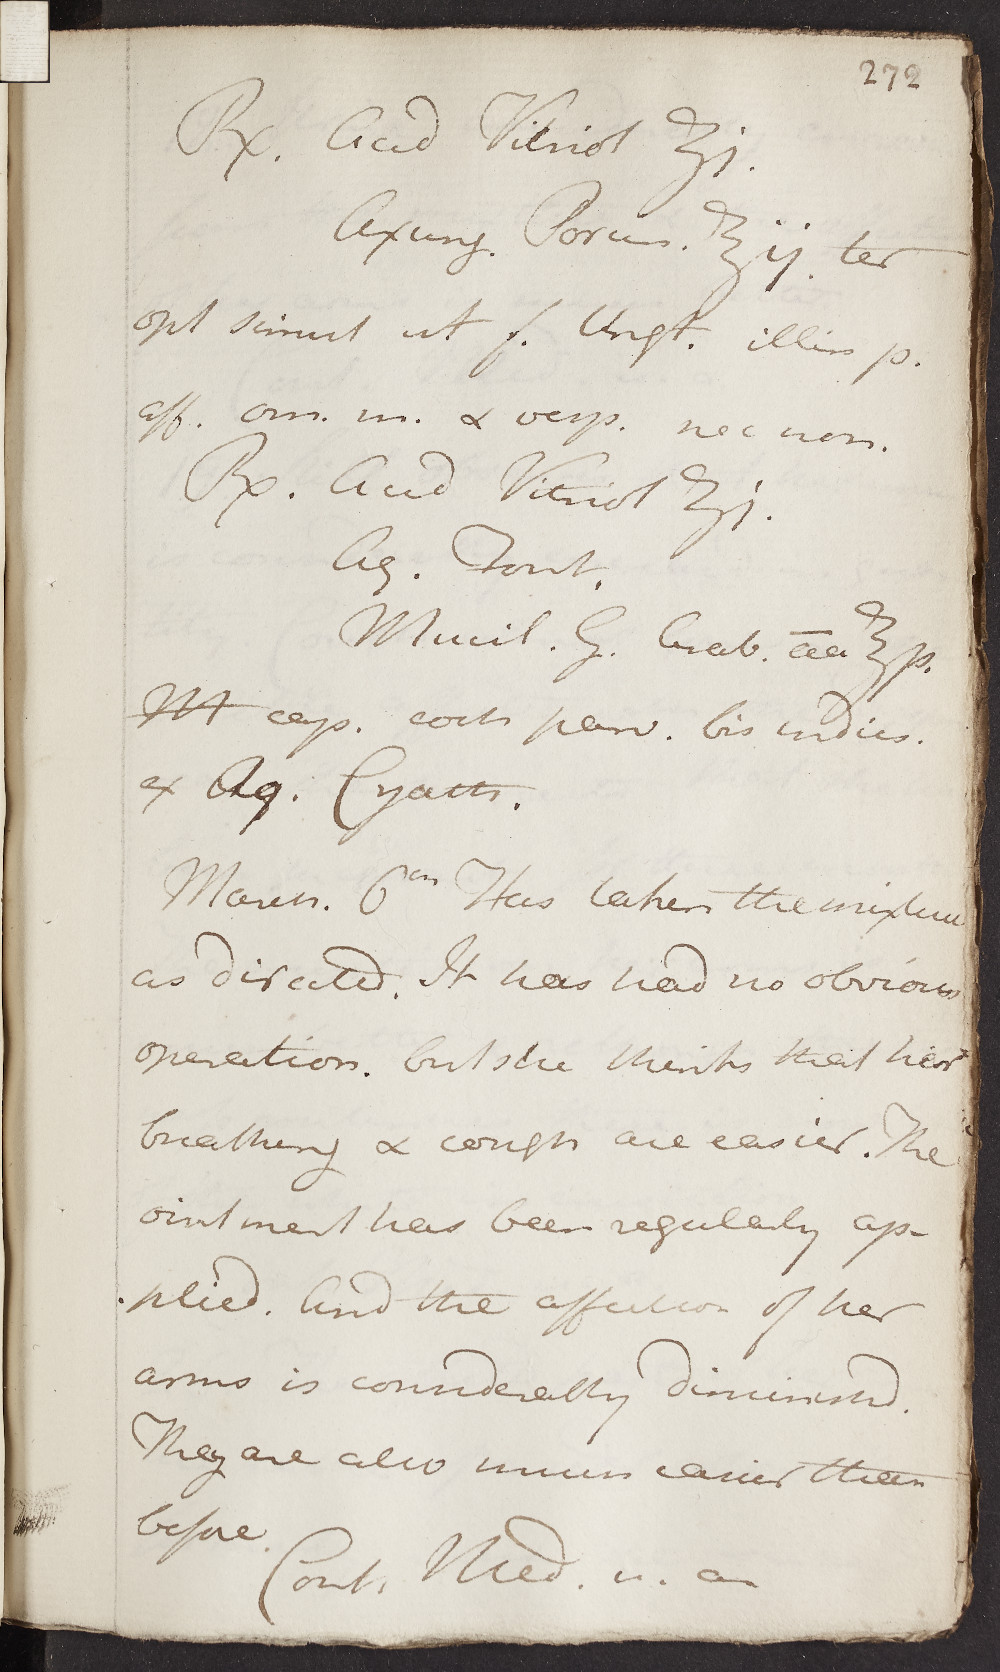 272
Rx. Acid Vitriol ʒj.
Axung. Porcin. ℥ij. ter
opt simul ut f. Ungt. illin p.
aff. om. m. & vesp. nec non.
Rx. Acid Vitriol ʒj.
Aq. Font.
Mucil. G. Arab. āā ℥ſs.
M cap. coch parv. bis indies.
ex Aq. Cyath.
March. 6th Has taken the mixture
as directed. It has had no obvious
operation. but she thinks that her
breathing & cough are easier. The
ointment has been regularly ap-
plied. And the affection of her
arms is considerably diminishd.
They are also much easier than
before.
Cont. Med. u. a